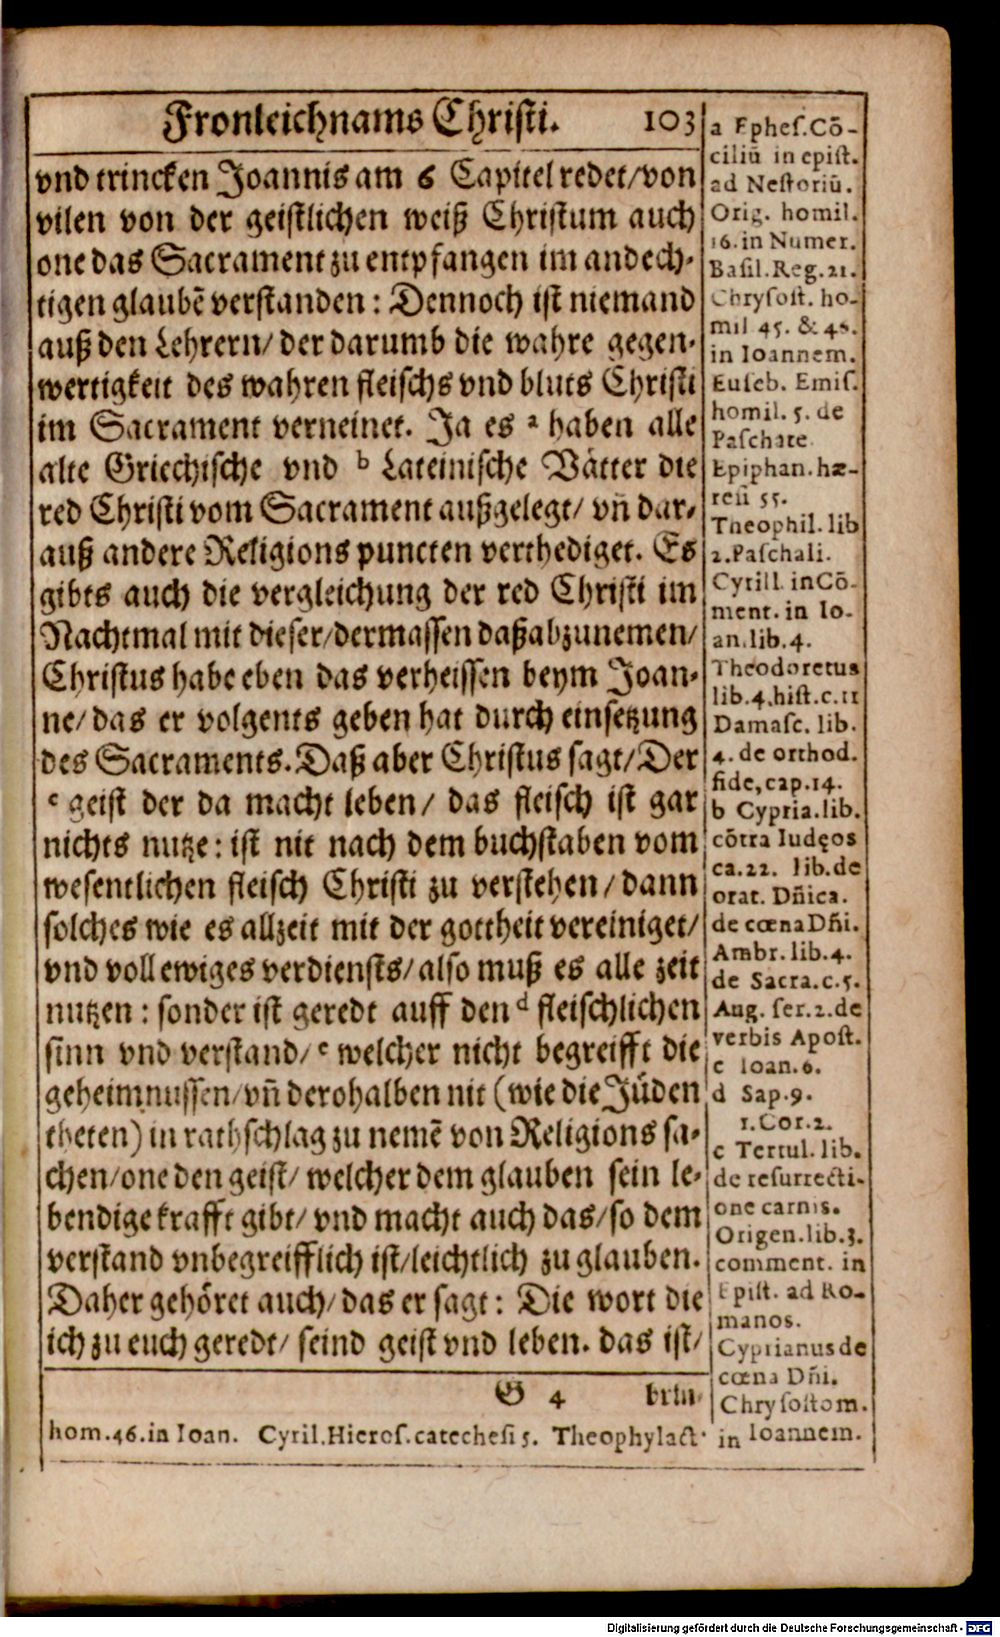 Fronleichnams Christi. 103
vnd trincken Joannis am 6 Capitel redet/von
vilen von der geistlichen weiß Christum auch
one das Sacrament zu entpfangen im andech-
tigen glaubẽ verstanden: Dennoch ist niemand
auß den Lehrern/ der darumb die wahre gegen-
wertigkeit des wahren fleischs vnd bluts Christi
im Sacrament verneinet. Ja es a haben alle
alte Griechische vnd b Lateinische Vätter die
red Christi vom Sacrament außgelegt/ vñ dar-
auß andere Religions puncten verthediget. Es
gibts auch die vergleichung der red Christi im
Nachtmal mit dieser/dermassen daß abzunemen/
Christus habe eben das verheissen beym Joan-
ne/das er volgents geben hat durch einsetzung
des Sacraments. Daß aber Christus sagt/Der
c geist der da macht leben/ das fleisch ist gar
nichts nutze: ist nit nach dem buchstaben vom
wesentlichen fleisch Christi zu verstehen/dann
solches wie es allzeit mit der gottheit vereiniget/
vnd voll ewiges verdiensts/also muß es alle zeit
nutzen: sonder ist geredt auff den d fleischlichen
sinn vnd verstand/ e welcher nicht begreifft die
geheimnussen/vñ derohalben nit (wie die Jüden
theten) in rathschlag zu nemẽ von Religions sa-
chen/one den geist/ welcher dem glauben sein le-
bendige krafft gibt/ vnd macht auch das/so dem
verstand vnbegreifflich ist/leichtlich zu glauben.
Daher gehöret auch/das er sagt: Die wort die
ich zu euch geredt/ seind geist vnd leben. das ist/
G 4 brin-
a Ephes.Cõ-
ciliũ in epist.
ad Nestoriũ.
Orig. homil.
16.in Numer.
Basil.Reg.21.
Chrysost. ho-
mil 45. & 46.
in Ioannem.
Euseb. Emis.
homil. 5. de
Paschate.
Epiphan.hæ-
resi 55.
Theophil.lib
2.Paschali.
Cyrill. in Cõ-
ment. in Io-
an.lib.4.
Theodoretus
lib.4.hist.c.11
Damasc. lib.
4. de orthod.
fide, cap.14.
b Cypria.lib.
cõtra Iudęos
ca.22. lib.de
orat. Dñica.
de cœna Dñi.
Ambr.lib.4.
de Sacra.c.5.
Aug. ser.2.de
verbis Apost.
c Ioan.6.
d Sap.9.
1.Cor.2.
e Tertul.lib.
de resurrecti-
one carnis.
Origen.lib.3.
comment. in
Epist. ad Ro-
manos.
Cyprianus de
cœna Dñi.
Chrysostom.
hom.46.in Ioan. Cyril.Hieros.catechesi 5. Theophylact. in Ioannem.
Digitalisierung gefördert durch die Deutsche Forschungsgemeinschaft - DFG